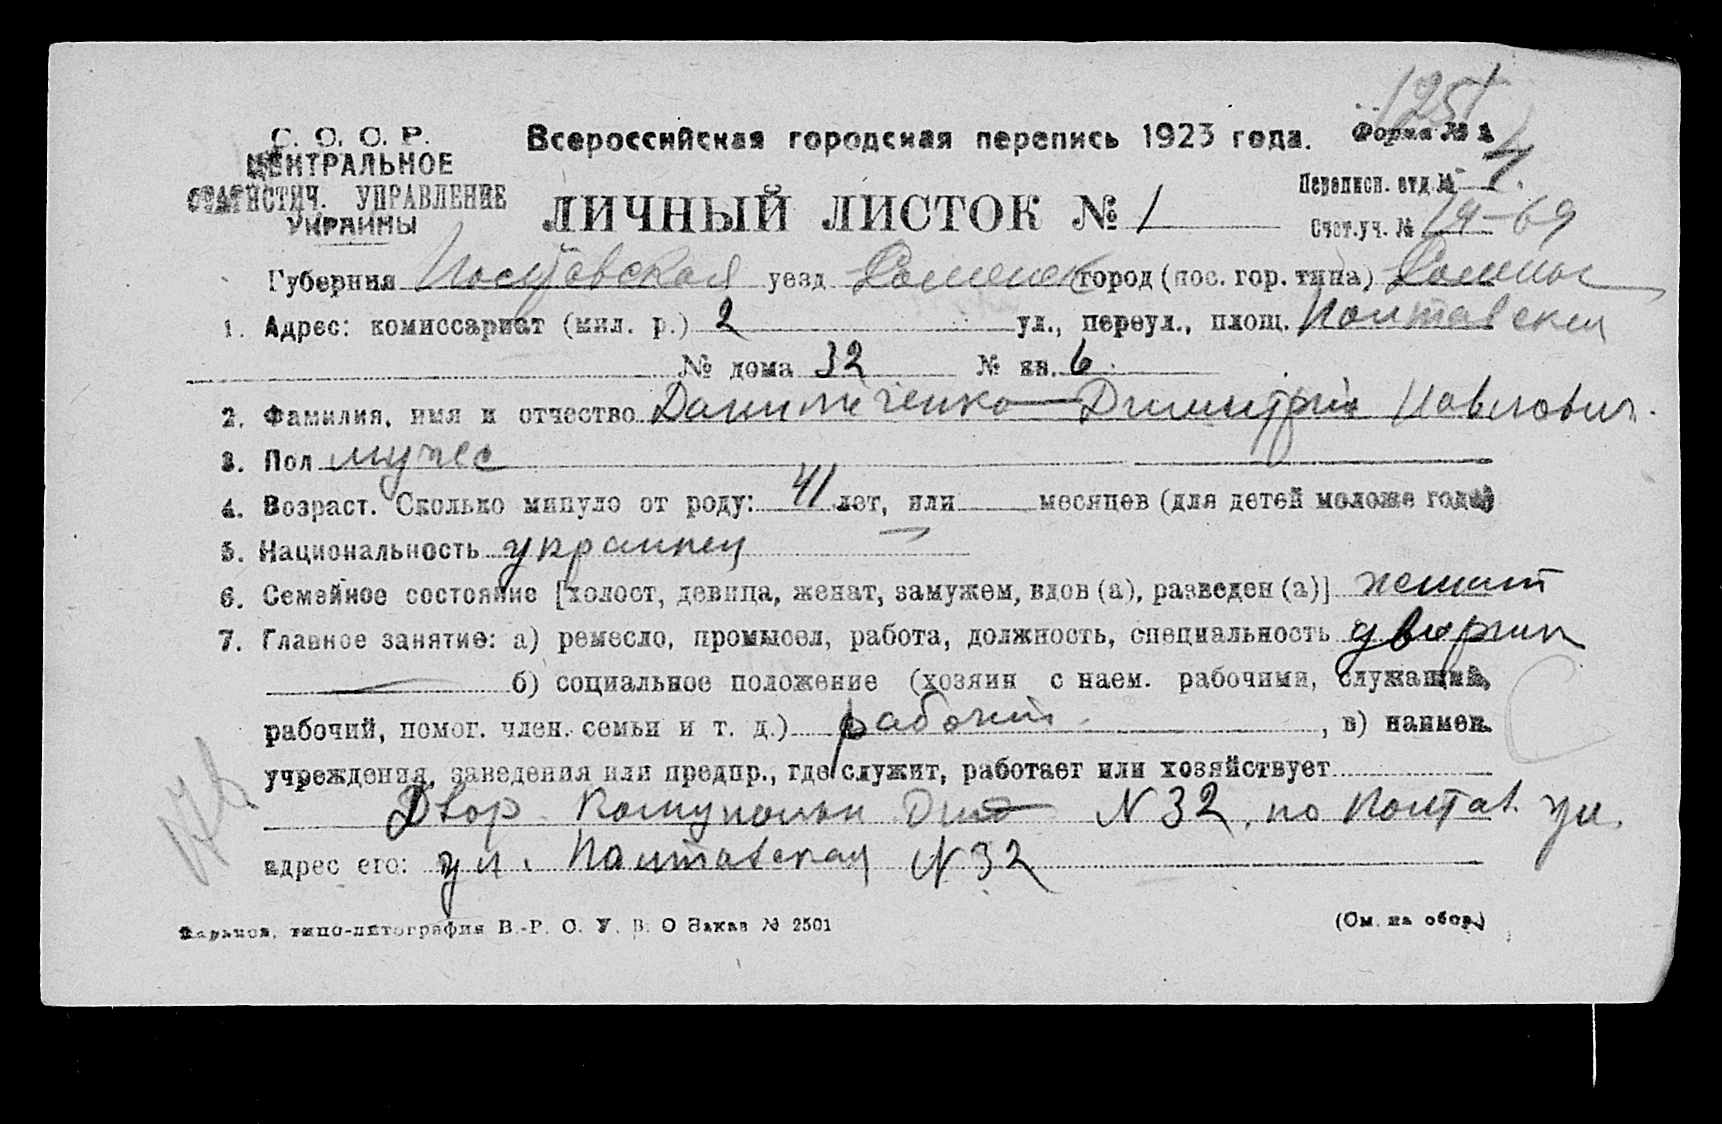 1251
С. С. С. Р.
ЦЕНТРАЛЬНОЕ
СТАТИСТИЧ. УПРАВЛЕНИЕ
УКРАИНЫ
Всероссийская городская перепись 1923 года.
Форма № 1
ЛИЧНЫЙ ЛИСТОК № 1
Переписн. отд. № 4.
Счет. уч. № 19-69
Губерния Полтавская уезд Роменск город (пос. гор. типа) Ромны
1. Адрес: комиссариат (мил. р.) 2 ул., переул., площ. Полтавская
№ дома 32 № кв. 6.
2. Фамилия, имя и отчество Димитрий Павлович.
3. Пол мужс
4. Возраст. Сколько минуло от роду: 41 лет, или месяцев (для детей моложе года)
5. Национальность украинец
6. Семейное состояние [холост, девица, женат, замужем, вдов (а), разведен (а)] женат
7. Главное занятие: а) ремесло, промысел, работа, должность, специальность дворник
б) социальное положение (хозяин с наем. рабочими, служащий,
рабочий, помог. член. семьи и т. д.) рабочий. , в) наимен.
учреждения, заведения или предпр., где служит, работает или хозяйствует
Двор N 32, по Полтав. ул.
адрес его: ул. Полтавская N 32
Харьков, типо-литография В.-Р. С. У. В. О Заказ № 2501
(См. на обор.)